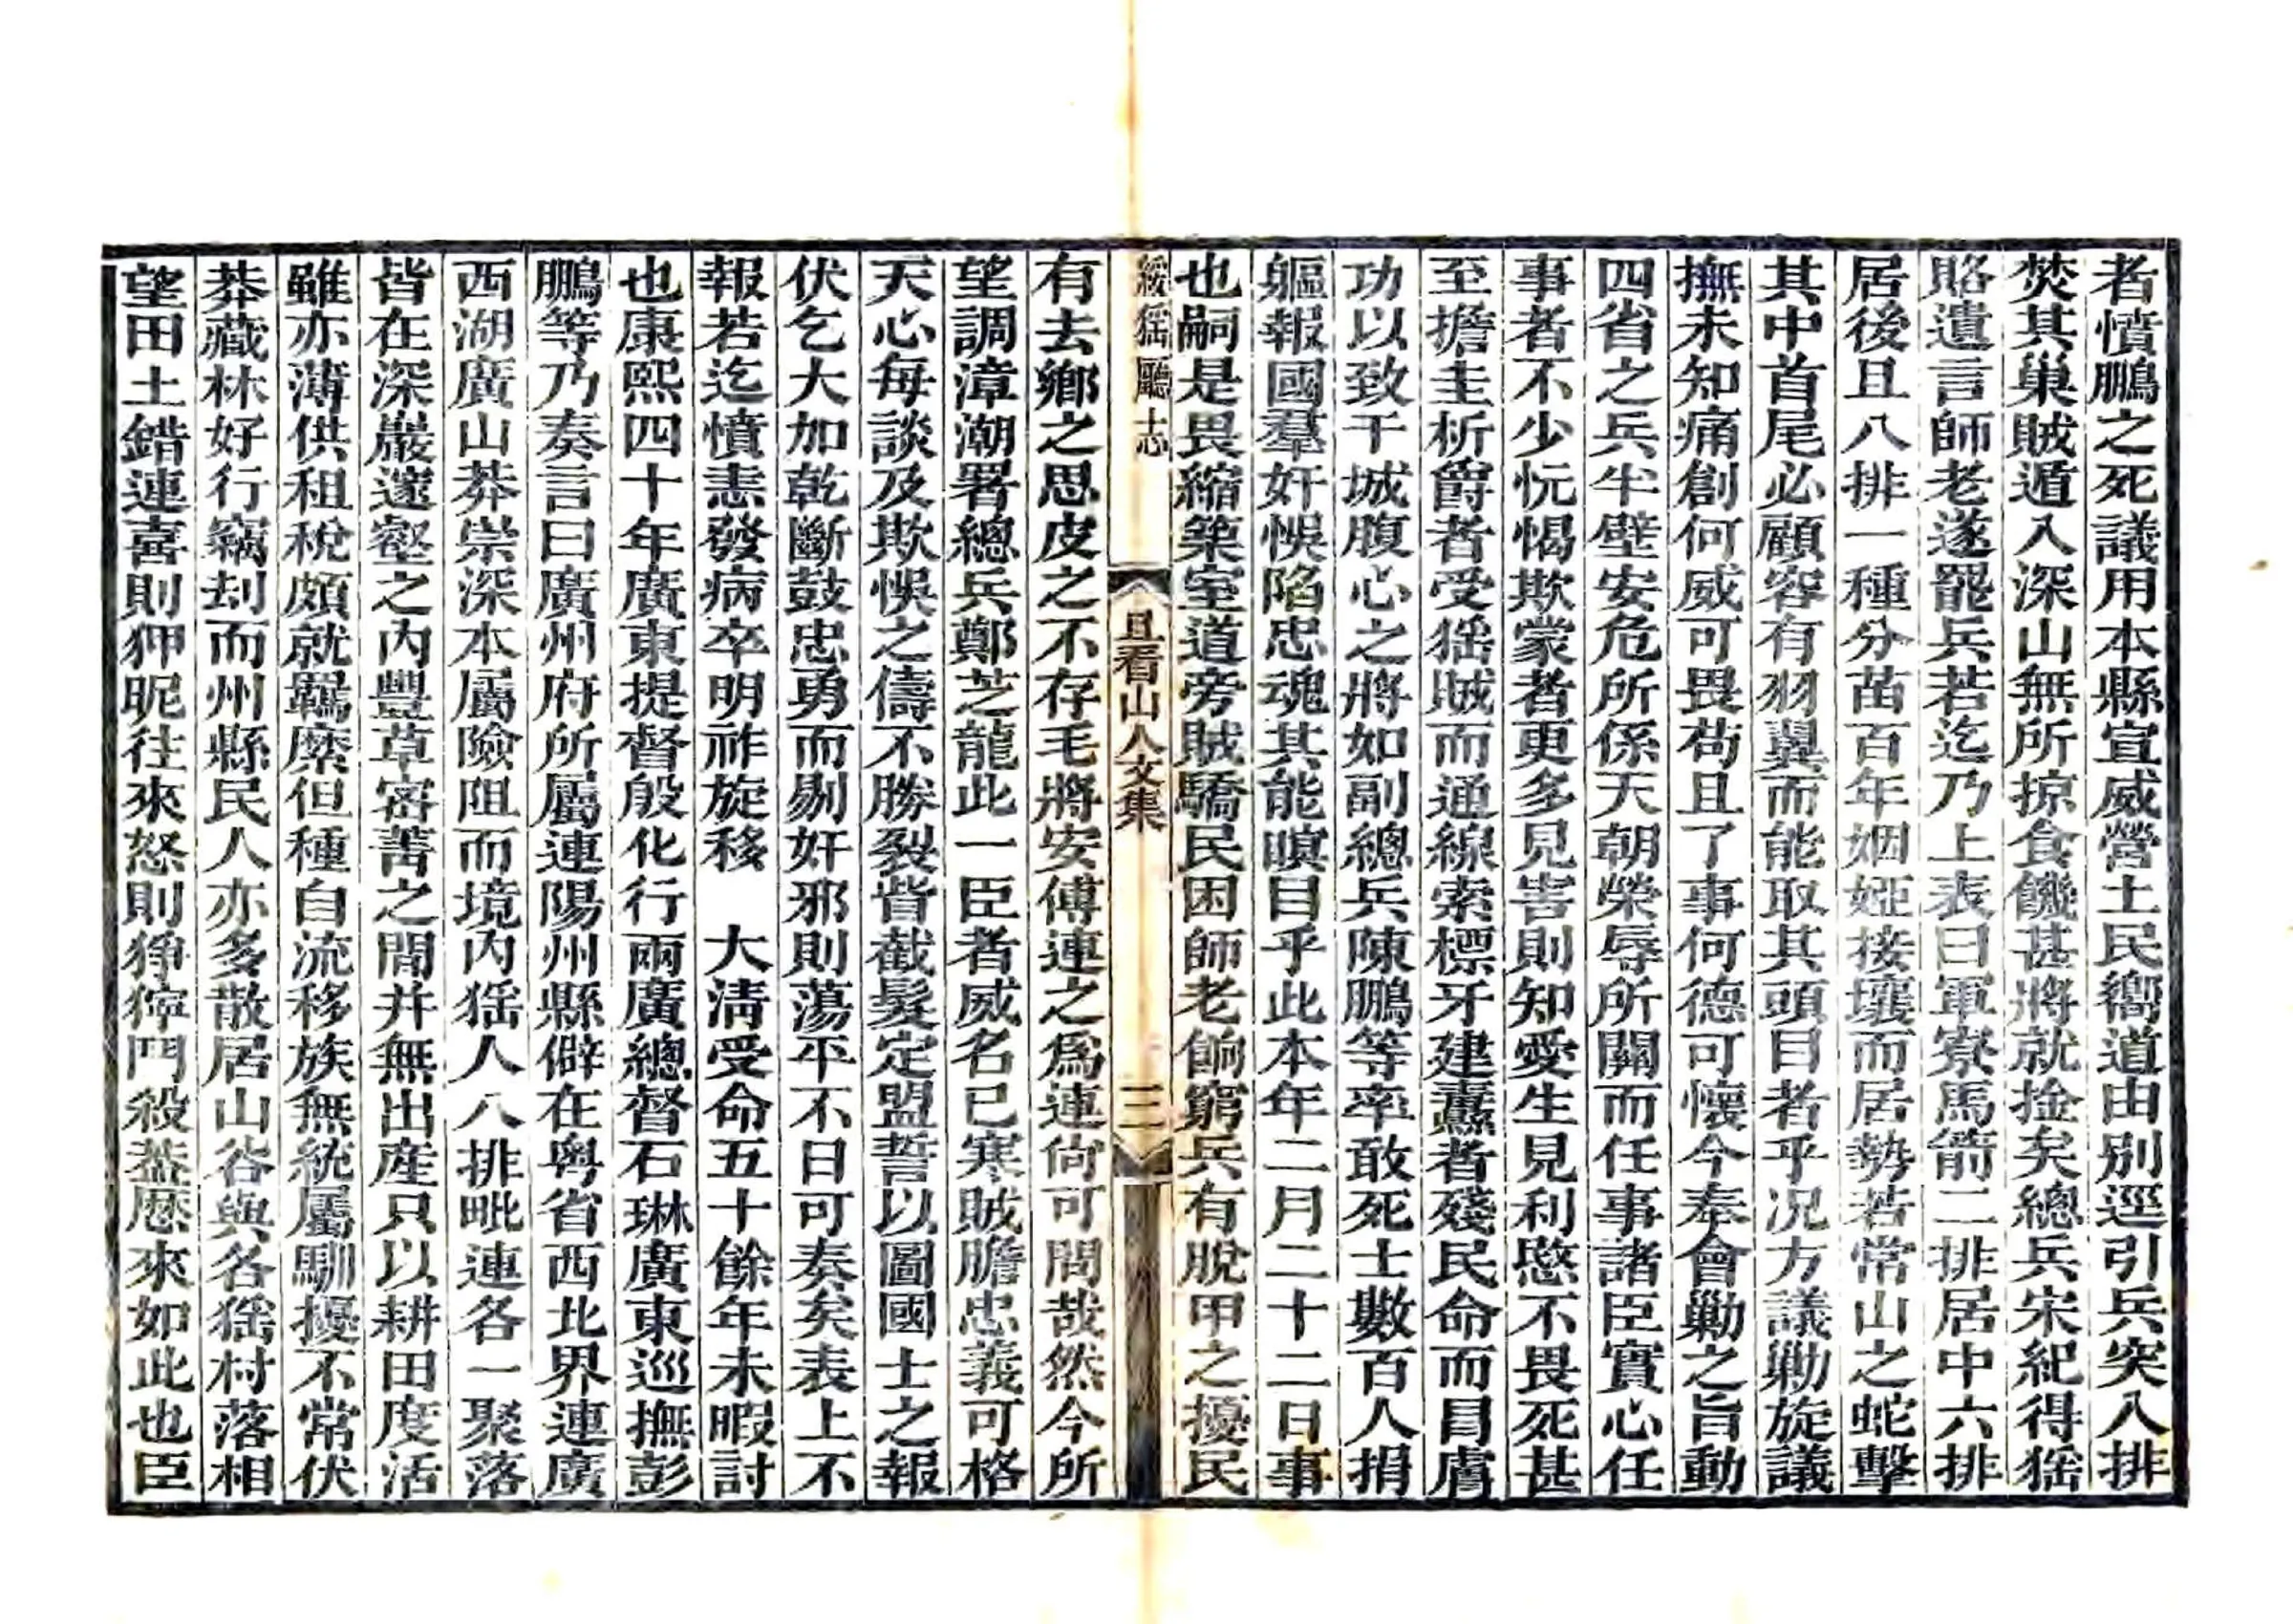 者憤鵬之死議用本縣宣威營土民嚮道由別逕引兵突入排
焚其巢賊遁入深山無所掠食饑甚將就捡矣總兵宋紀得猺
賂遺言師老遂罷兵若迄乃上表曰軍寮馬箭二排居中六排
居後且八排一種分苗百年姻婭接壤而居勢若常山之蛇擊
其中首尾必顧容有羽翼而能取其頭目者乎况方議勦旋議
撫未知痛創何威可畏苟且了事何德可懷今奉會勦之旨動
四省之兵半壁安危所係天朝榮辱所關而任事諸臣實心任
事者不少忨愒欺蒙者更多見害則知愛生見利愍不畏死甚
至擔圭析爵者受猺賊而通線索標牙建纛者殘民命而冒膚
功以致干城腹心之將如副總兵陳鵬等卒敢死士數百人捐
軀報國羣奸悞陷忠魂其能瞑目乎此本年二月二十二日事
也嗣是畏縮築室道旁賊驕民困師老餉窮兵有脫甲之擾民
綏猺廳志
且看山人文集
三
有去鄉之思皮之不存毛將安傅連之爲連尙可問哉然今所
望調漳潮署總兵鄭芝龍此一臣者威名已寒賊膽忠義可格
天心每談及欺悞之儔不勝裂眥截髮定盟誓以圖國士之報
伏乞大加乾斷鼓忠勇而剔奸邪則蕩平不日可奏矣表上不
報若迄憤恚發病卒明祚旋移　大清受命五十餘年未暇討
也康熙四十年廣東提督殷化行兩廣總督石琳廣東巡撫彭
鵬等乃奏言曰廣州府所屬連陽州縣僻在粵省西北界連廣
西湖廣山莽崇深本屬險阻而境內猺人八排毗連各一聚落
皆在深巖邃壑之內豐草密菁之間并無出產只以耕田度活
雖亦薄供租稅頗就羈縻但種自流移族無統屬馴擾不常伏
莽藏林好行竊刦而州縣民人亦多散居山谷與各猺村落相
望田土錯連喜則狎昵往來怒則猙獰鬥殺葢歷來如此也臣